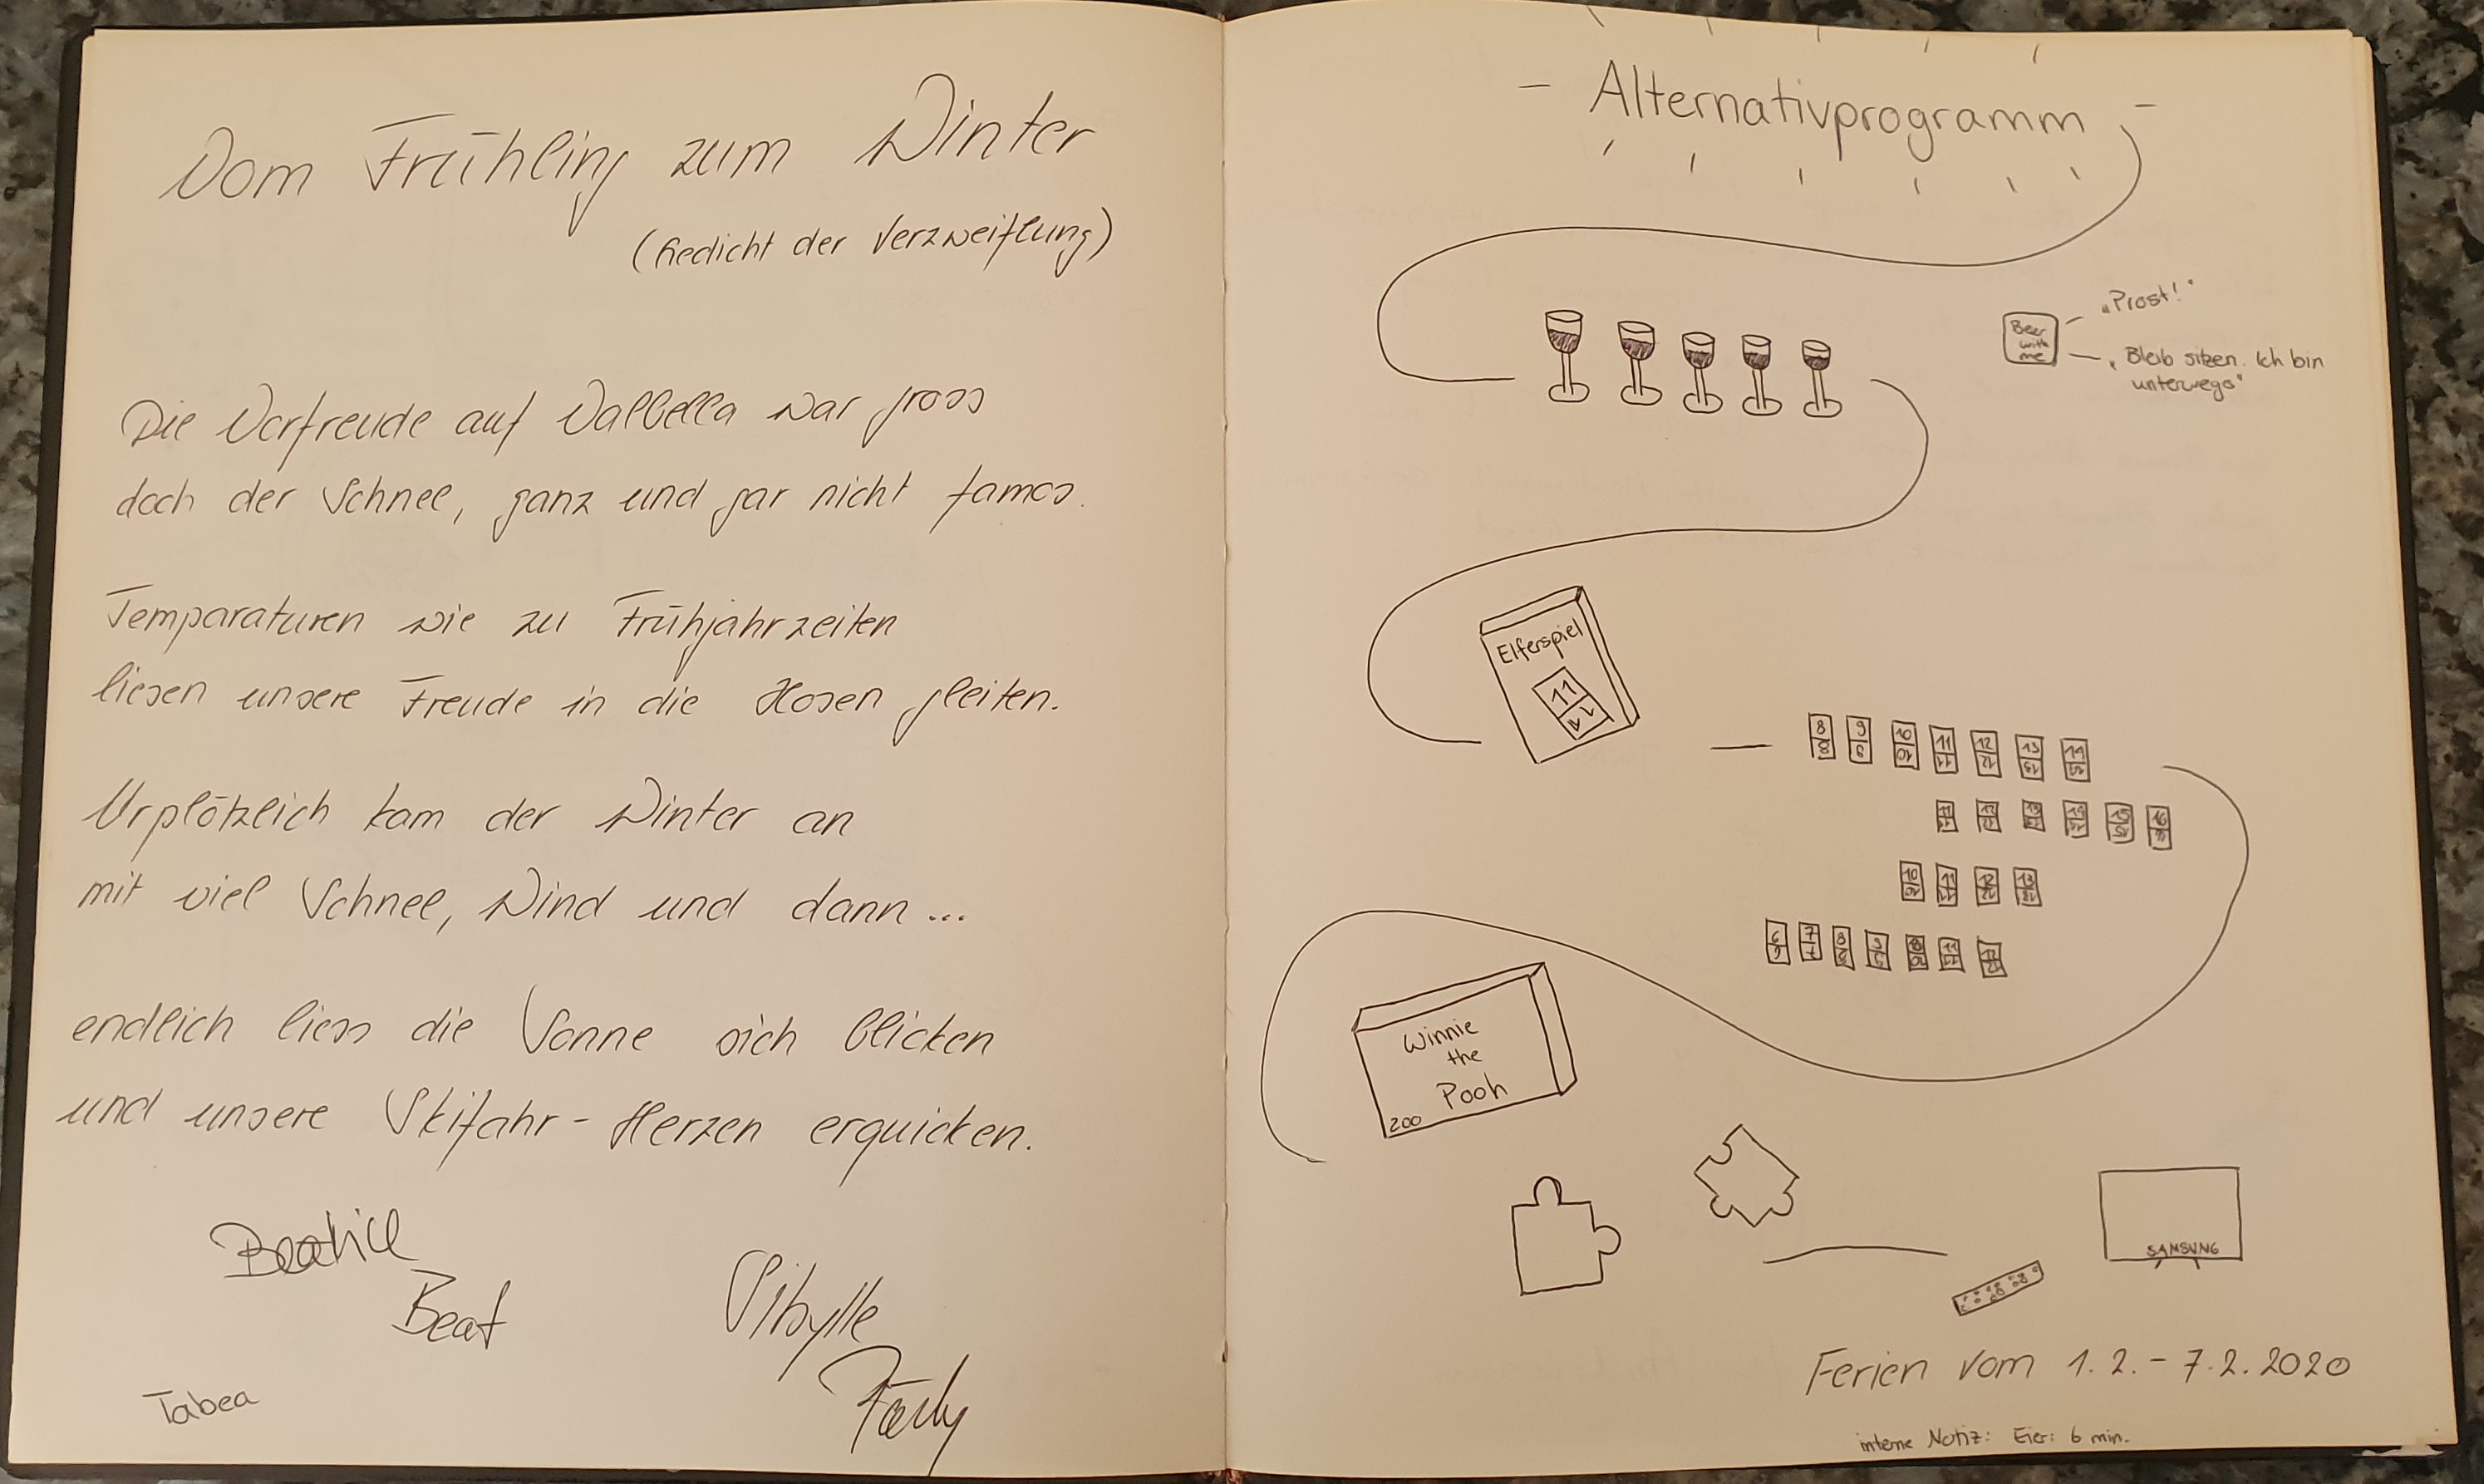 Vom Frühling zum Winter
(Gedicht der Verzweiflung)
Die Vorfreude auf Valbella war gross
doch der Schnee, ganz und gar nicht famos.
Temparaturen wie zu Frühjahrzeiten
liesen unsere Freude in die Hosen gleiten.
Urplötzlich kam der Winter an
mit viel Schnee, Wind und dann...
endlich liess die Sonne sich blicken
und unsere Skifahr-Herzen erquicken.
Beatrice
Beat
Sibylle
Tabea
- Alternativprogramm -
Beer
with
me
"Prost!"
"Bleib sitzen. Ich bin
unterwegs"
Elferspiel
11
11
8 9 10 11 12 13 14
11 12 13 14 15 16
10 11 12 13
6 7 8 9 10 11 12
Winnie
the
Pooh
200
SAMSUNG
Ferien vom 1.2.-7.2.2020
interne Notiz: Eier: 6 min.